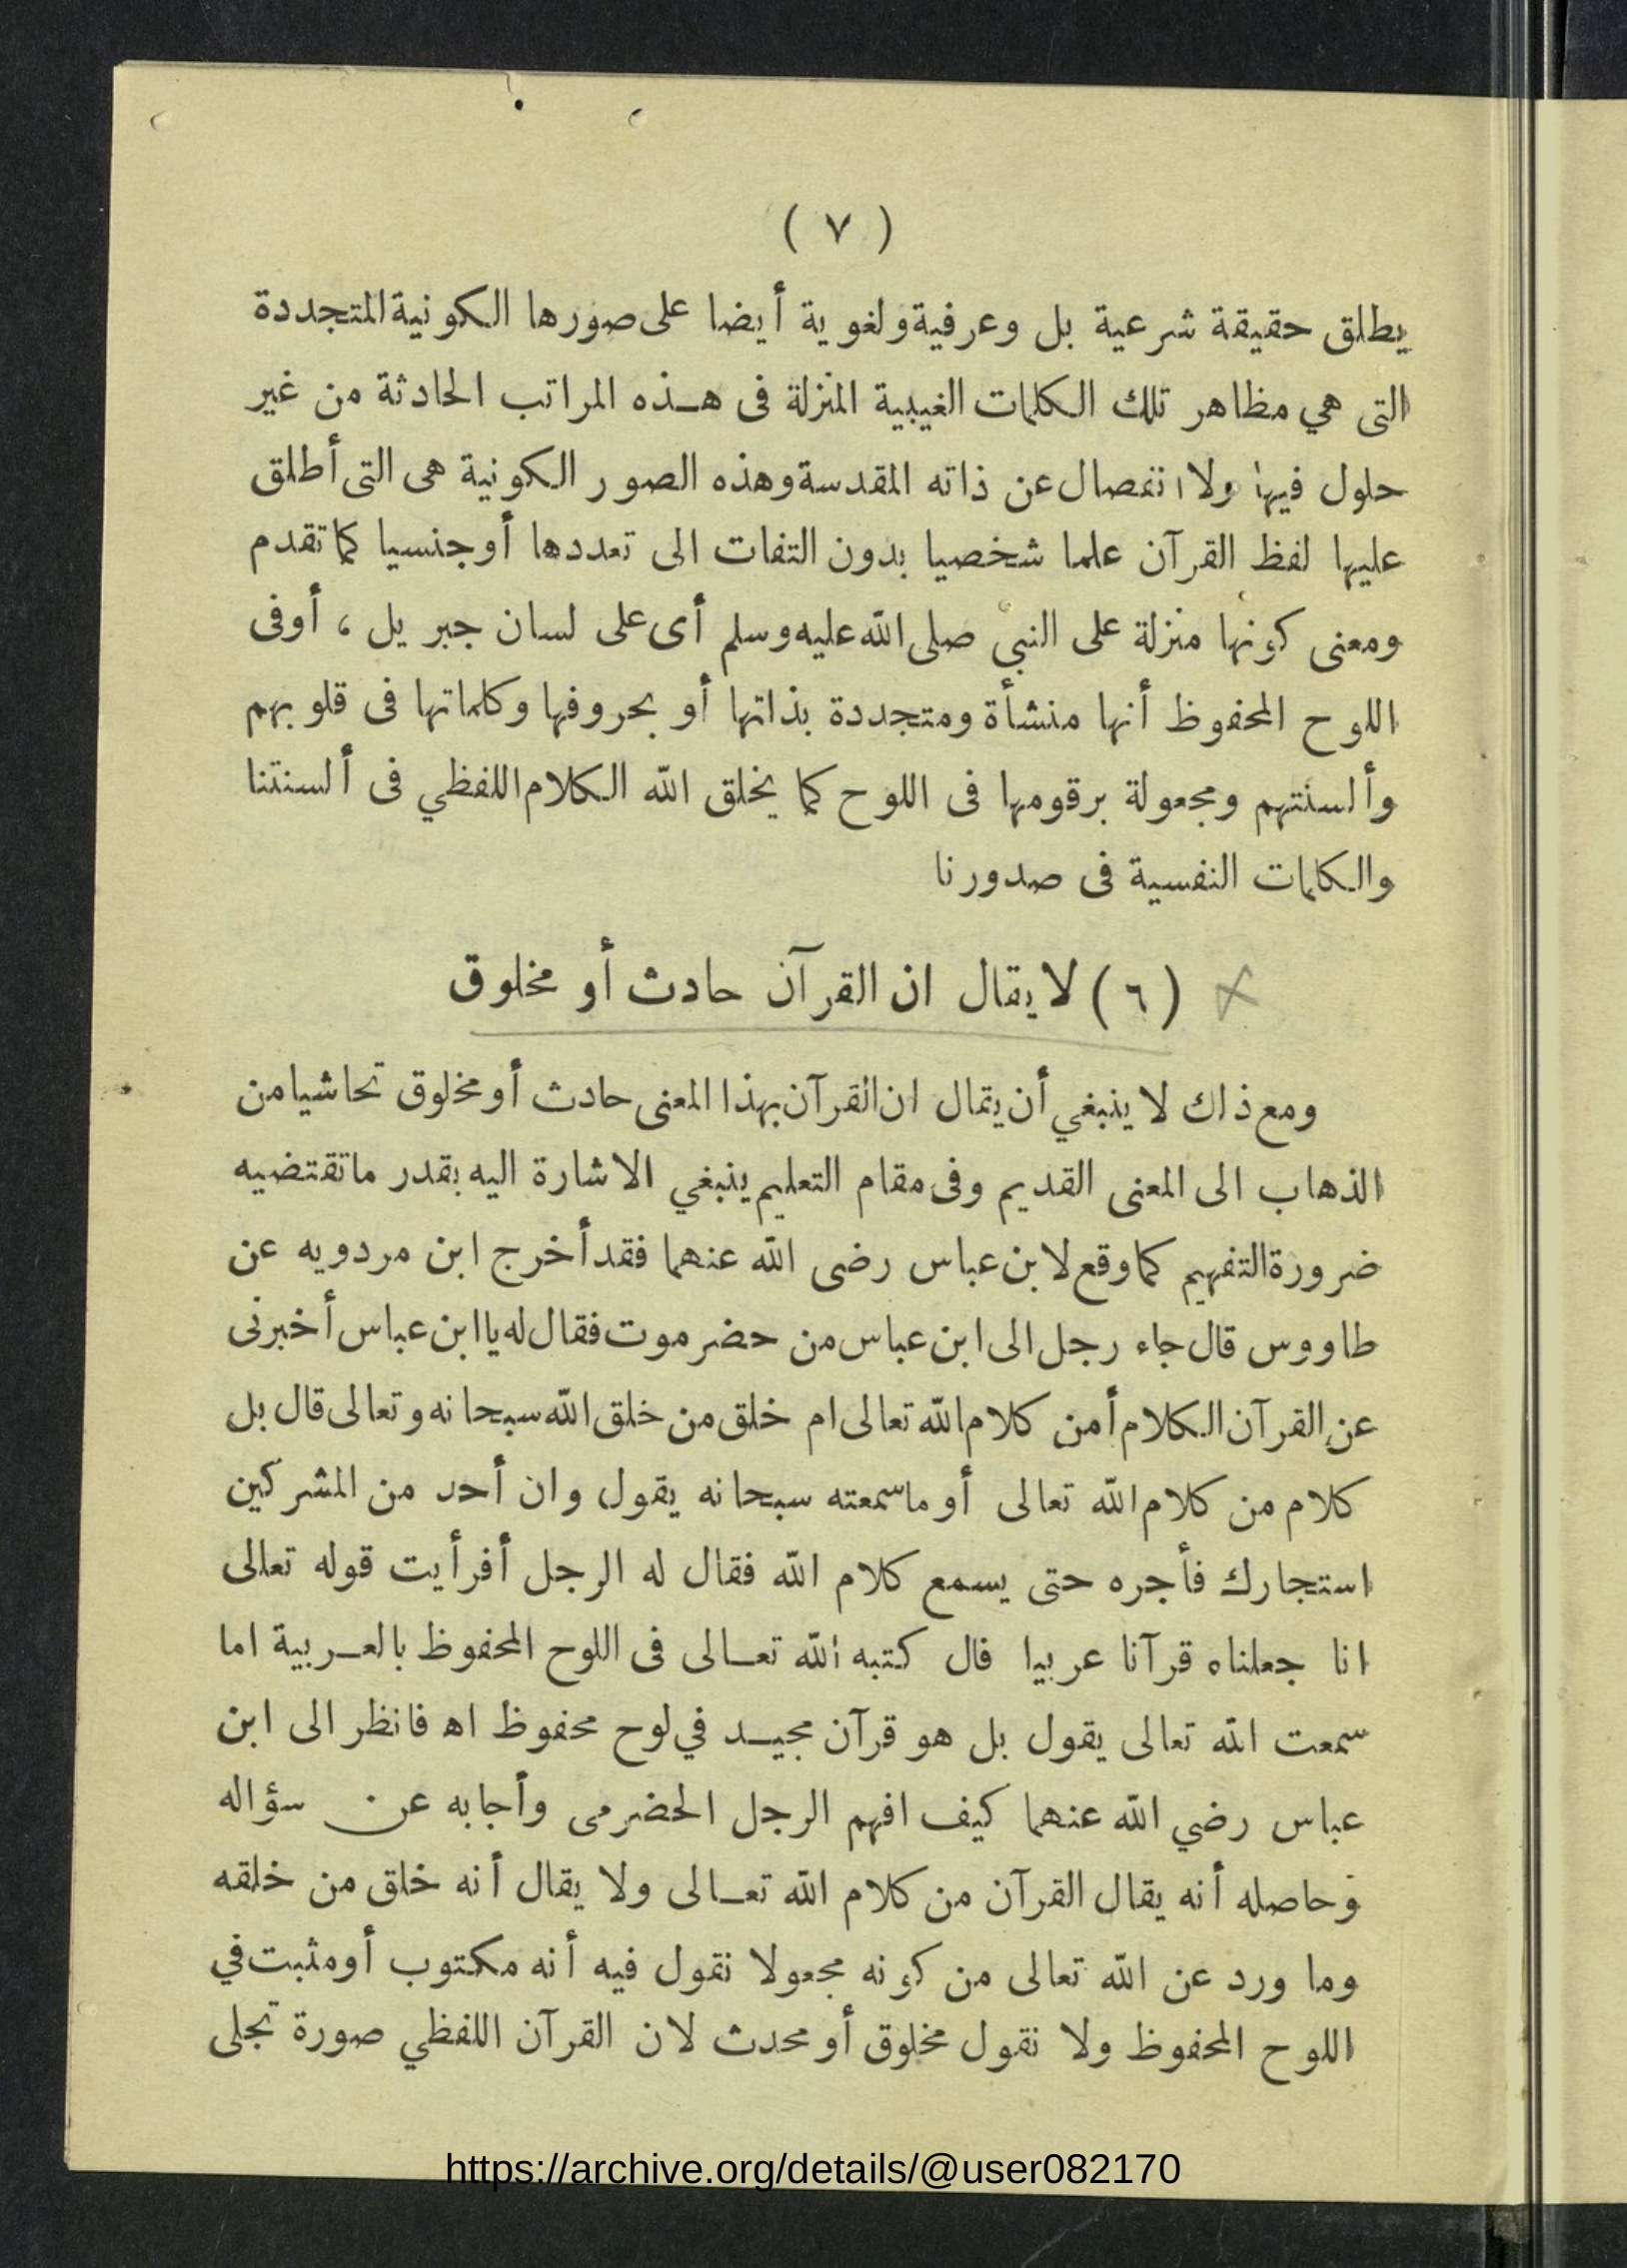 ( ٧ )
يطلق حقيقة شرعية بل وعرفية ولغوية أيضا على صورها الكونية المتجددة
التى هي مظاهر تلك الكلمات الغيبية المنزلة فى هـذه المراتب الحادثة من غير
حلول فيها ولا انفصال عن ذاته المقدسة وهذه الصور الكونية هى التى أطلق
عليها لفظ القرآن علما شخصيا بدون التفات الى تعددها أو جنسيا كما تقدم
ومعنى كونها منزلة على النبي صلى الله عليه وسلم أى على لسان جبريل ، أوفى
اللوح المحفوظ أنها منشأة ومتجددة بذاتها أو بحروفها وكلماتها فى قلوبهم
وألسنتهم ومجعولة برقومها فى اللوح كما يخلق الله الكلام اللفظي فى ألسنتنا
والكلمات النفسية فى صدورنا
(٦) لا يقال ان القرآن حادث أو مخلوق
ومع ذاك لا ينبغي أن يقال ان القرآن بهذا المعنى حادث أو مخلوق تحاشيا من
الذهاب الى المعنى القديم وفى مقام التعليم ينبغي الاشارة اليه بقدر ما تقتضيه
ضرورة التفهيم كما وقع لابن عباس رضى الله عنهما فقد أخرج ابن مردويه عن
طاووس قال جاء رجل الى ابن عباس من حضرموت فقال له يا ابن عباس أخبرنى
عن القرآن الكلام أمن كلام الله تعالى ام خلق من خلق الله سبحانه وتعالى قال بل
كلام من كلام الله تعالى أو ما سمعته سبحانه يقول وان أحد من المشركين
استجارك فأجره حتى يسمع كلام الله فقال له الرجل أفرأيت قوله تعالى
انا جعلناه قرآنا عربيا قال كتبه الله تعـالى فى اللوح المحفوظ بالعـربية اما
سمعت الله تعالى يقول بل هو قرآن مجيـد في لوح محفوظ اه فانظر الى ابن
عباس رضي الله عنهما كيف افهم الرجل الحضرمى وأجابه عن سؤاله
وحاصله أنه يقال القرآن من كلام الله تعـالى ولا يقال أنه خلق من خلقه
وما ورد عن الله تعالى من كونه مجعولا نقول فيه أنه مكتوب أو مثبت في
اللوح المحفوظ ولا نقول مخلوق أو محدث لان القرآن اللفظي صورة تجلى
https://archive.org/details/@user082170